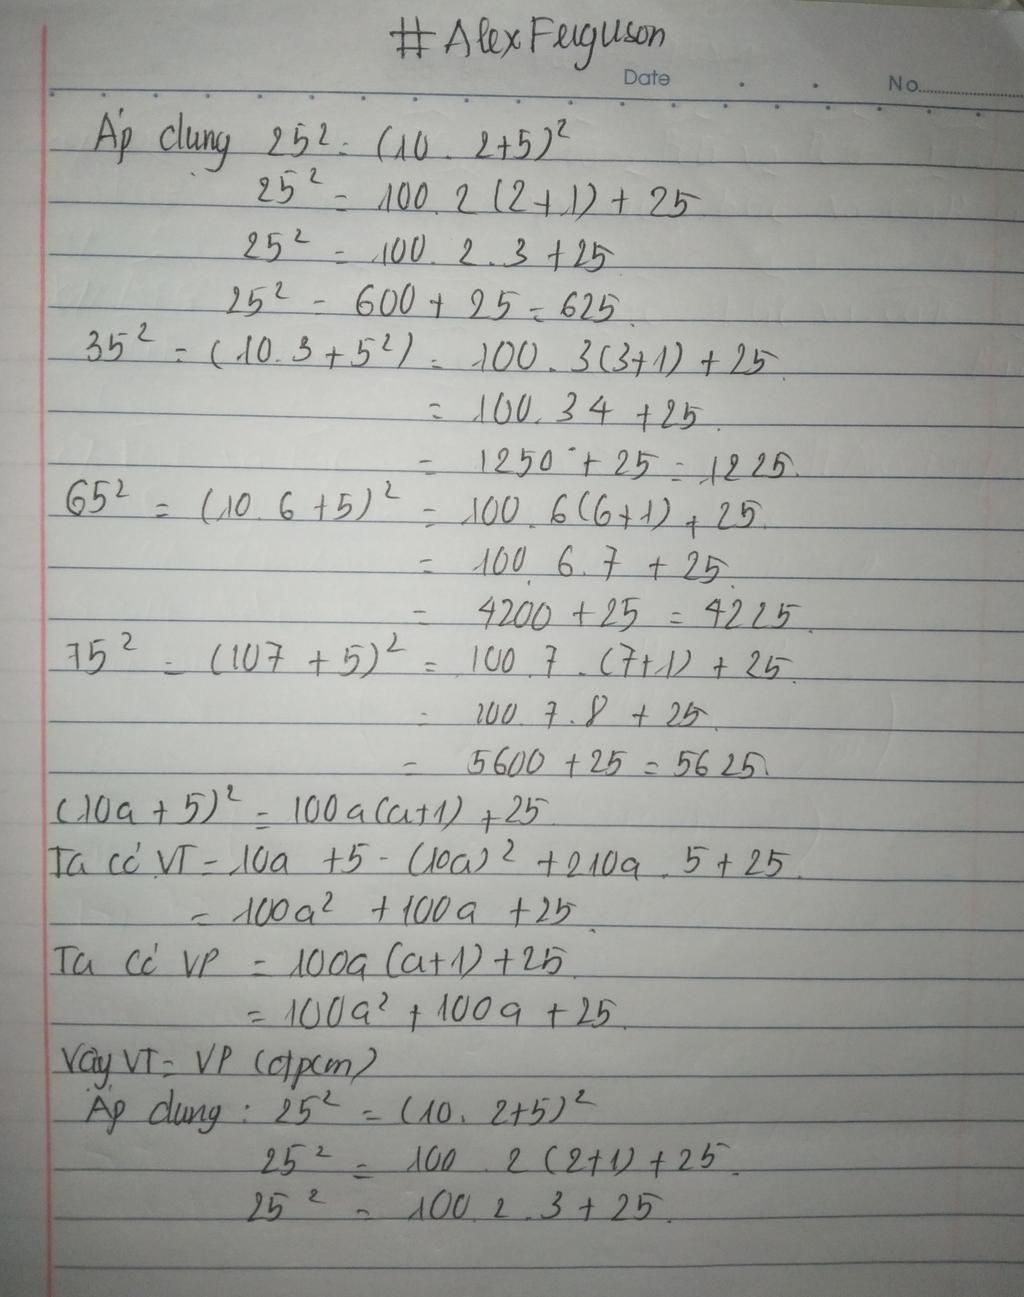 #AlexFerguson
Date No
Áp dung 25² = (10. 2+5)²
25² = 100. 2 (2+1) + 25
25² = 100. 2. 3 + 25
25² = 600 + 25 = 625.
35² = (10.3 + 5²) = 100. 3(3+1) + 25.
= 100. 34 + 25.
= 1250 + 25 = 1225.
65² = (10. 6 + 5)² = 100. 6(6+1) + 25.
= 100. 6. 7 + 25.
= 4200 + 25 = 4225.
75² = (107 + 5)² = 100. 7. (7+1) + 25.
= 100. 7. 8 + 25.
= 5600 + 25 = 5625.
(10a + 5)² = 100a(a+1) + 25.
Ta có VT = 10a + 5 - (10a)² + 210a. 5 + 25.
= 100a² + 100a + 25.
Ta có VP = 100a (a+1) + 25.
= 100a² + 100a + 25.
Vậy VT = VP (đpcm)
Áp dung: 25² = (10. 2+5)²
25² = 100. 2 (2+1) + 25.
25² = 100. 2. 3 + 25.